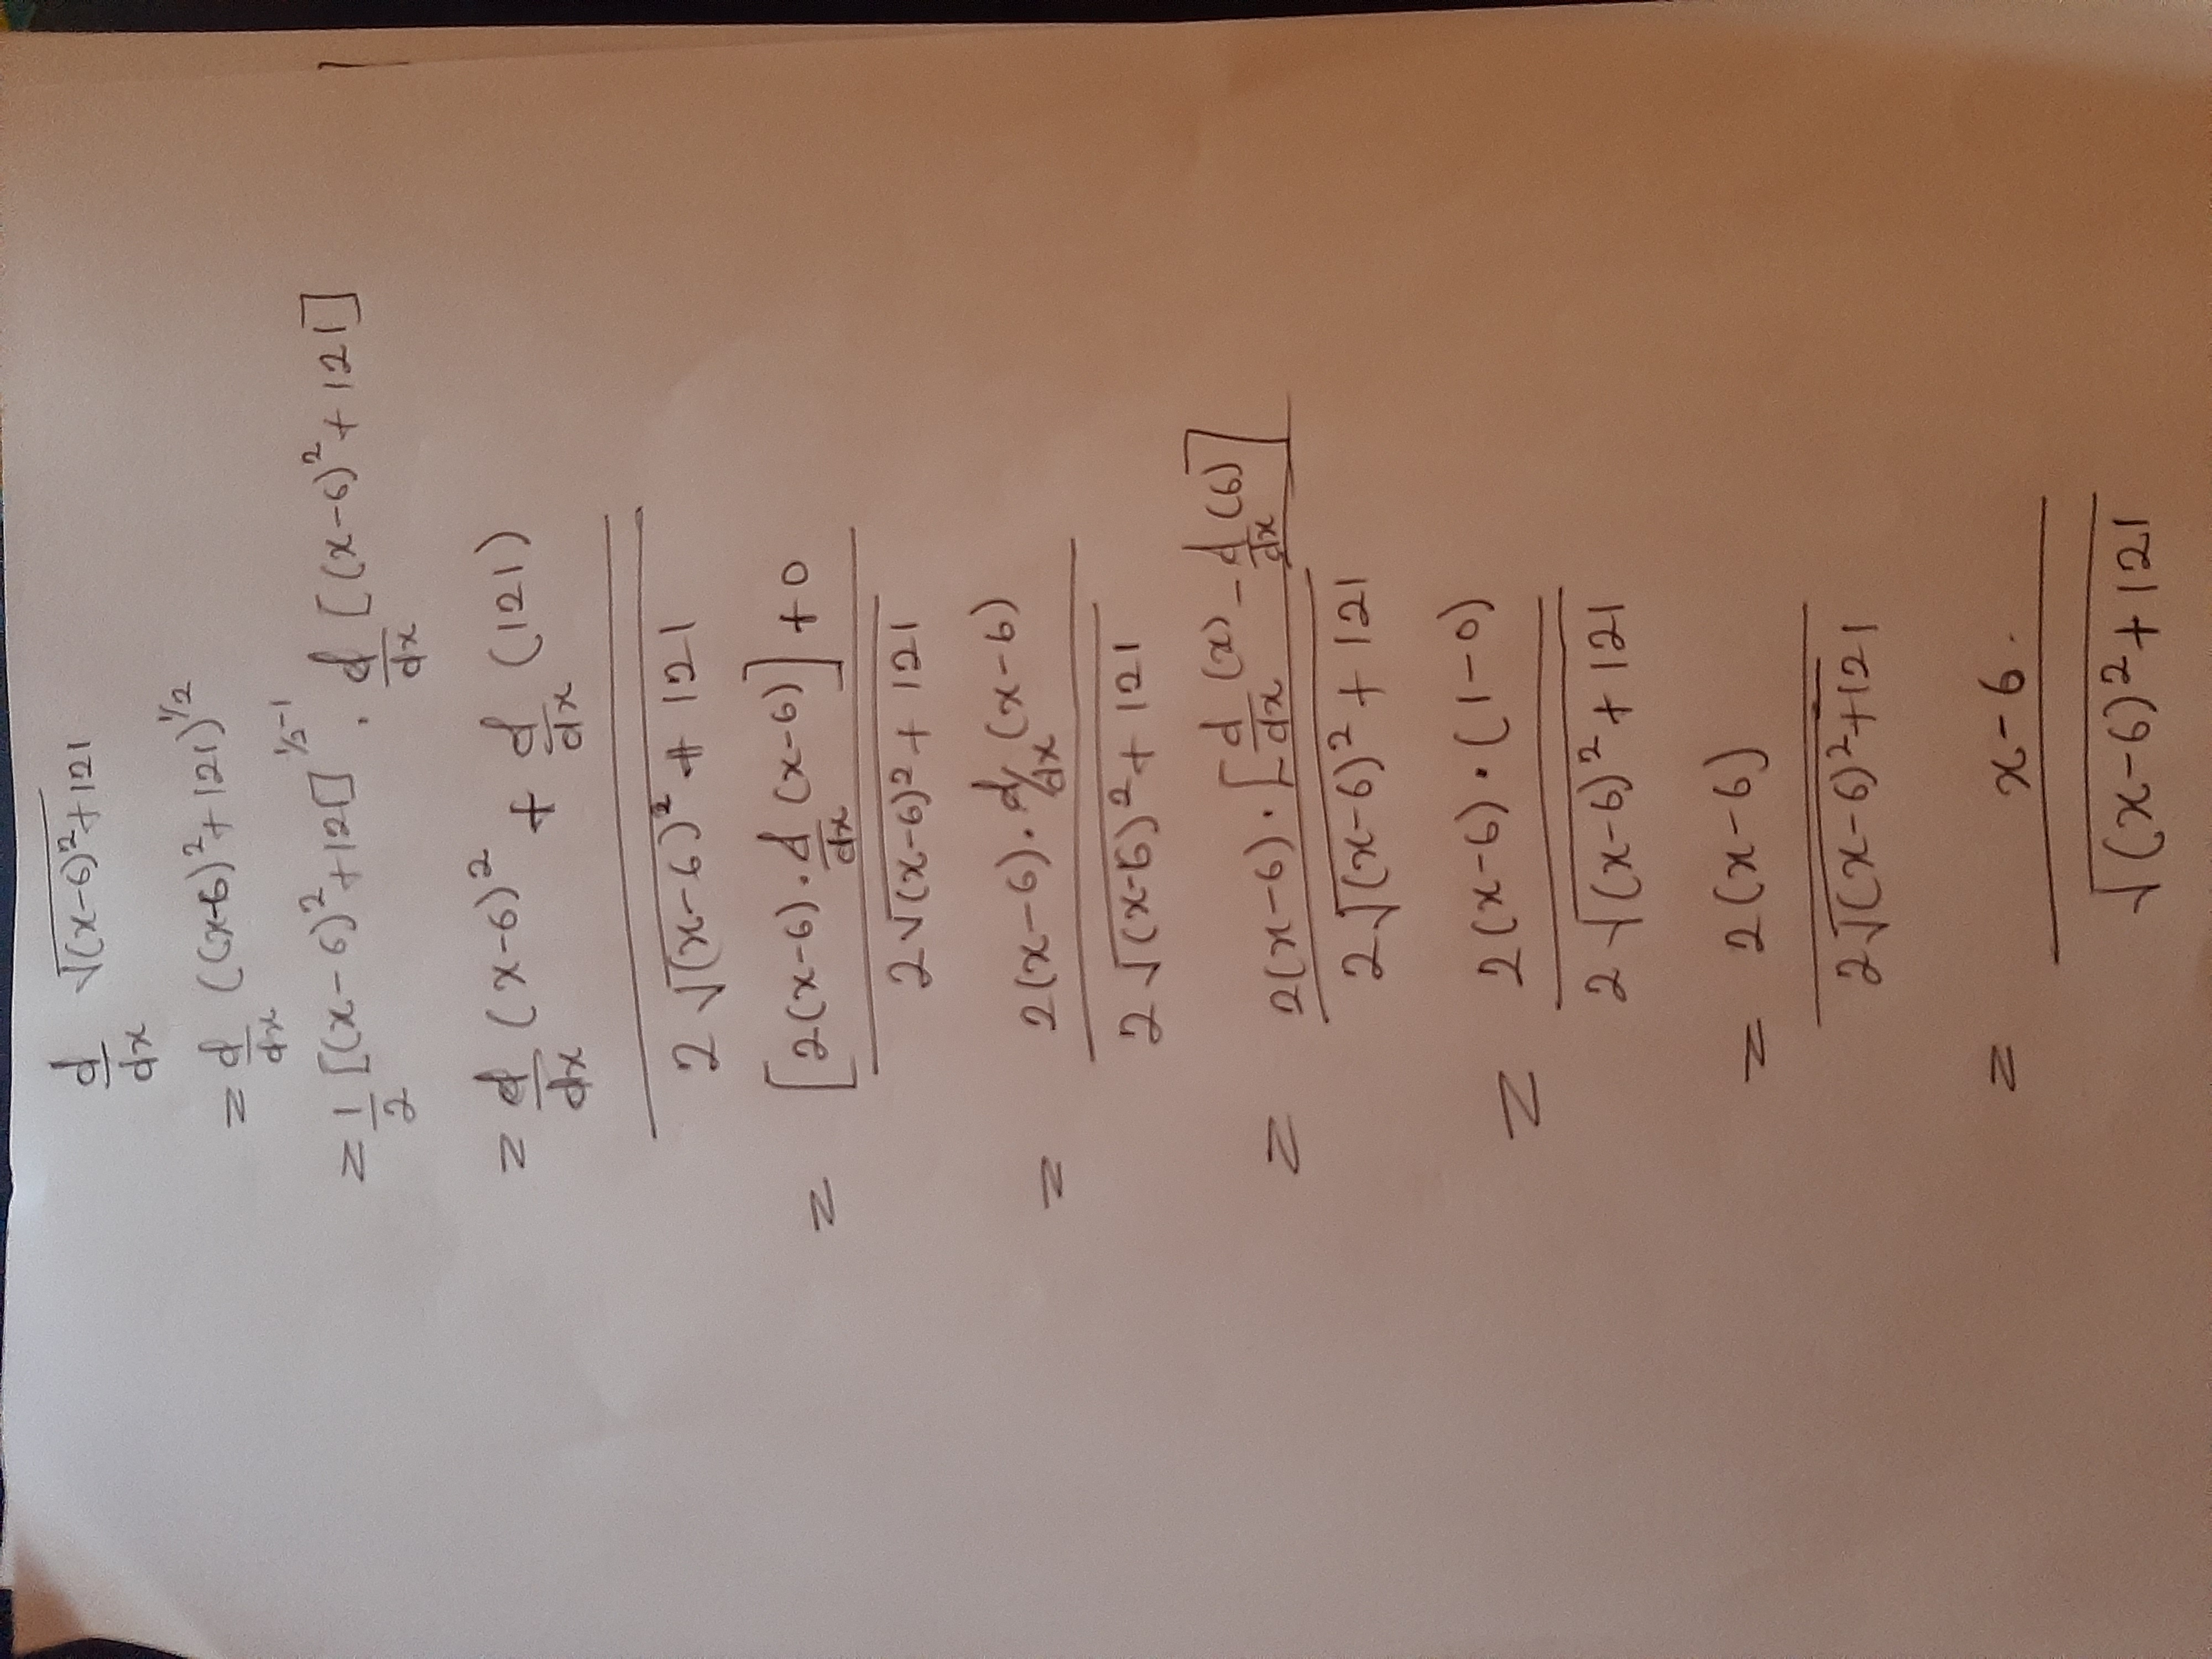 d/dx √(x-6)²+121
= d/dx ((x-6)²+121)^1/2
= 1/2 [(x-6)²+121]^1/2-1 . d/dx [(x-6)²+121]
= d/dx (x-6)² + d/dx (121)
2 √(x-6)² + 121
= [2(x-6) . d/dx (x-6)] + 0
2√(x-6)² + 121
= 2(x-6) . d/dx (x-6)
2 √(x-6)² + 121
= 2(x-6) . [d/dx (x) - d/dx (6)]
2√(x-6)² + 121
= 2(x-6) . (1-0)
2 √(x-6)² + 121
= 2(x-6)
2√(x-6)²+121
= x-6.
√(x-6)² + 121